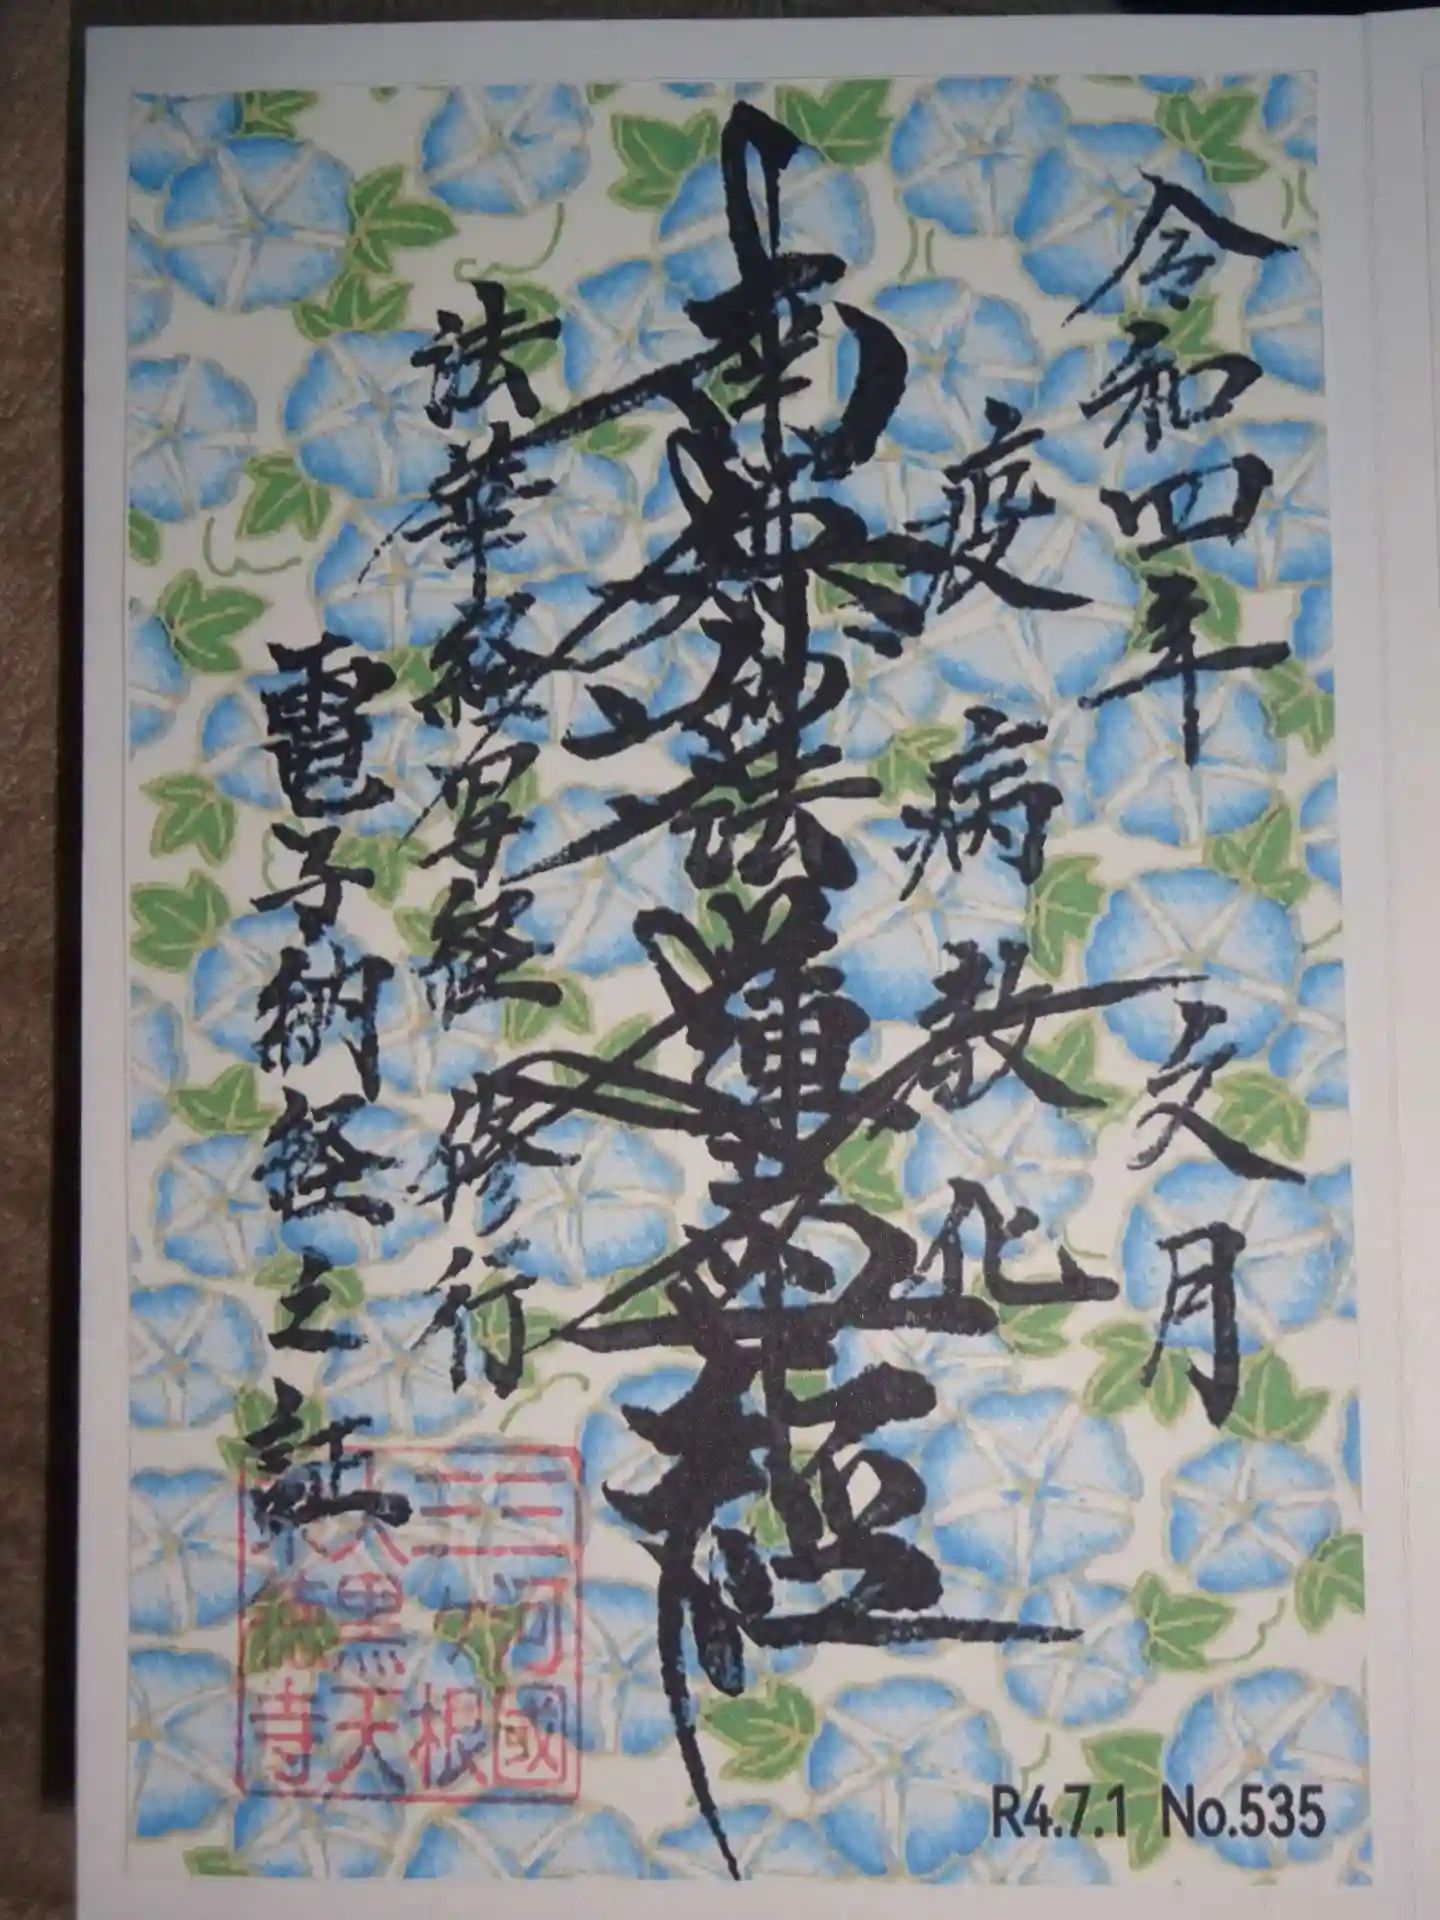 令和四年 文月
疫病散化
南無妙法蓮華経
法華経写経修行
電子納経之証
三河國
三ツ根
大黒天
徳寺
R4.7.1 No.535